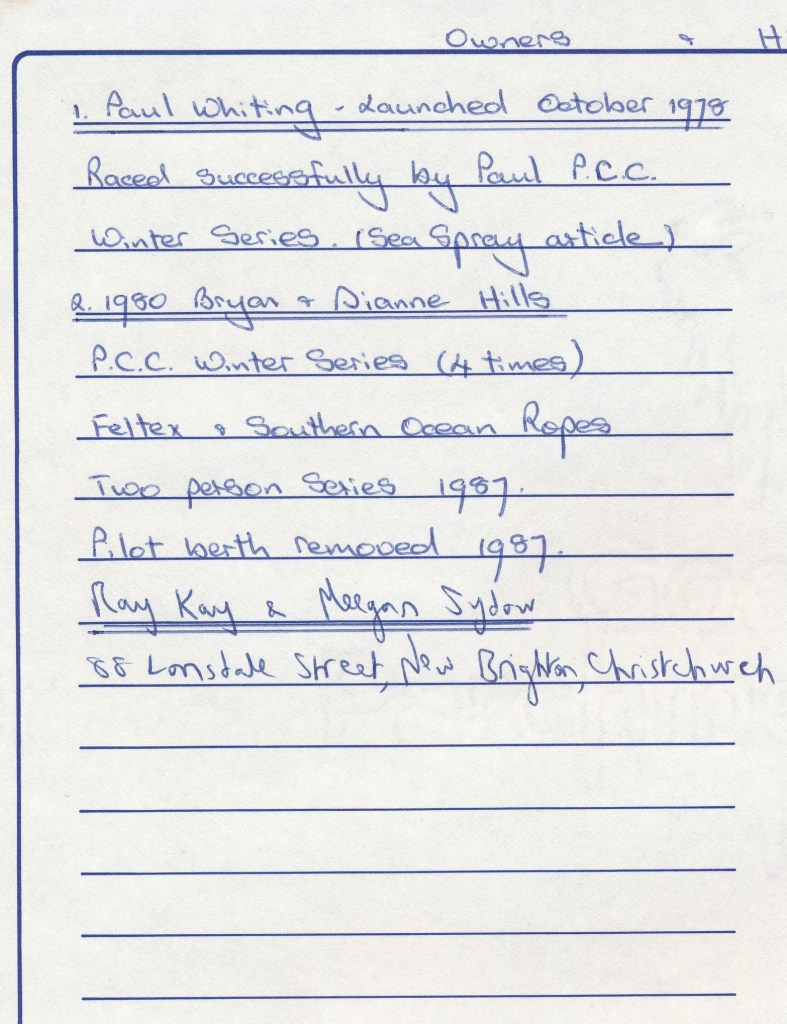 Owners & H
1. Paul Whiting - Launched October 1978
Raced successfully by Paul P.C.C.
Winter Series. (Sea Spray article)
2. 1980 Bryan & Dianne Hills
P.C.C. Winter Series (4 times)
Feltex & Southern Ocean Ropes
Two person Series 1987.
Pilot berth removed 1987.
Ray Kay & Meegan Sydow
88 Lonsdale Street, New Brighton, Christchurch